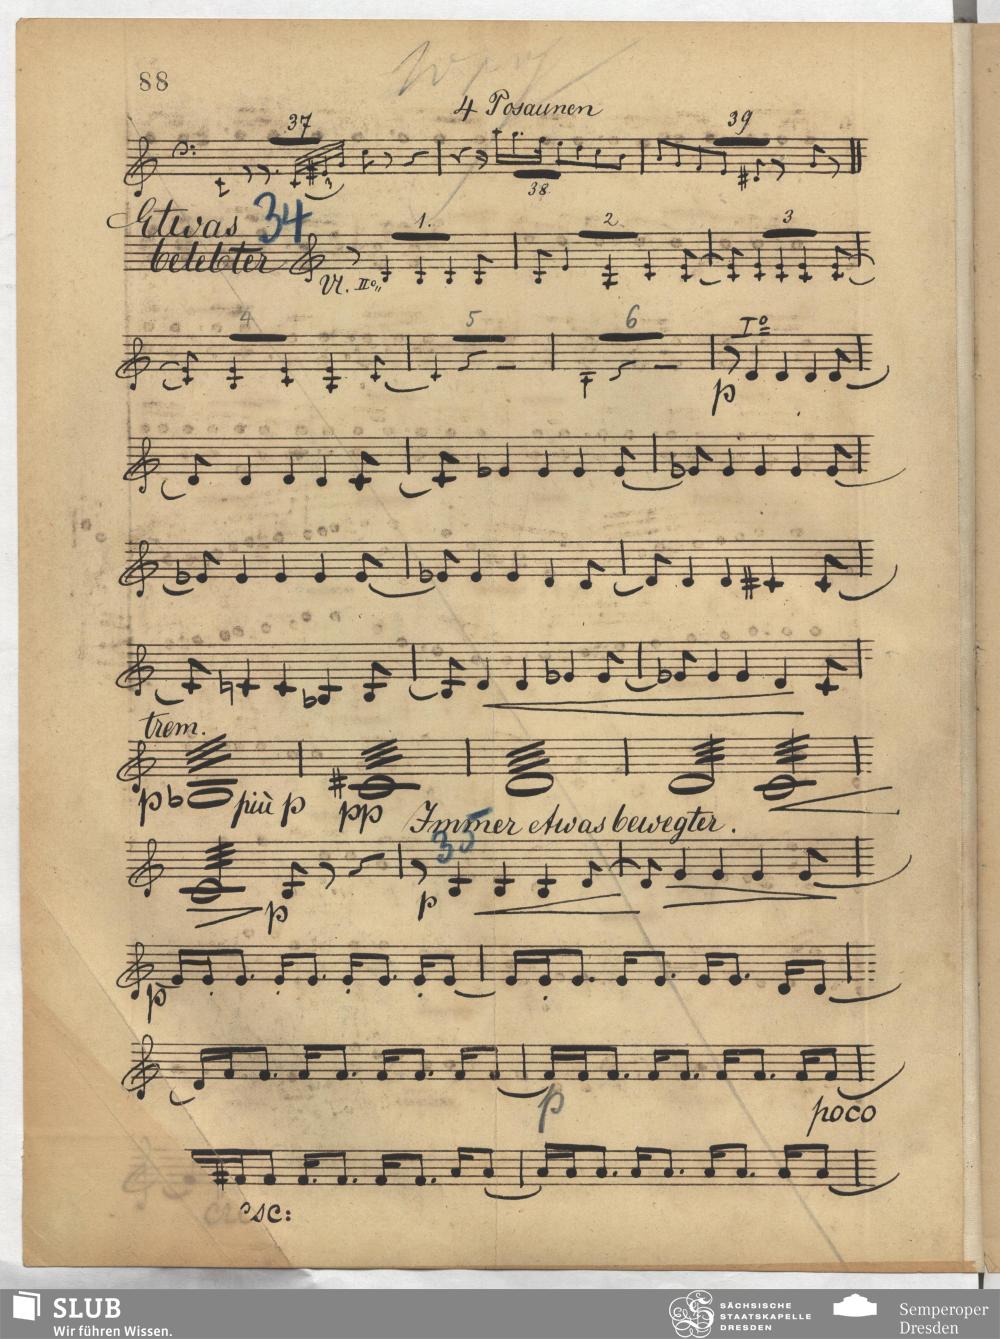 88
4 Posaunen
37
39
3
38
Etwas belebter
34
Vl. IIo
1.
2
3
4
5
6
Io
p
trem.
p
più p
pp
Immer etwas bewegter.
35
p
p
p
p
poco
cresc:
SLUB
Wir führen Wissen.
SÄCHSISCHE
STAATSKAPELLE
DRESDEN
Semperoper
Dresden